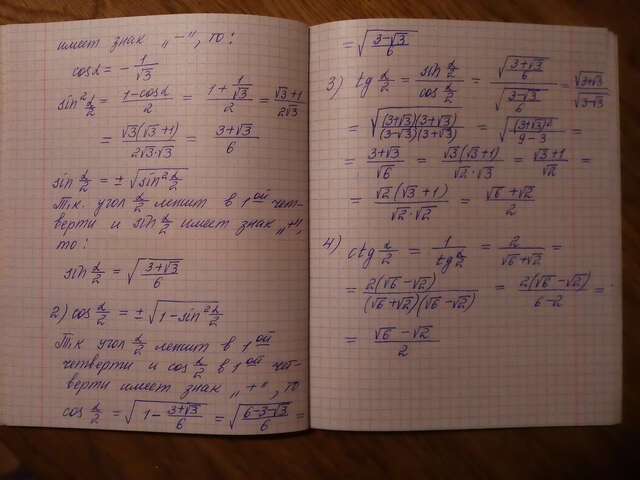 имеет знак „−", то:
cos α = − 1/√3
sin² α/2 = (1−cos α)/2 = (1 + 1/√3)/2 = (√3+1)/(2√3)
= √3(√3+1)/(2√3·√3) = (3+√3)/6
sin α/2 = ± √(sin² α/2)
Т.к. угол α/2 лежит в 1ой чет-
верти и sin α/2 имеет знак „+",
то:
sin α/2 = √((3+√3)/6)
2) cos α/2 = ± √(1−sin² α/2)
Т.к угол α/2 лежит в 1ой
четверти и cos α/2 в 1ой чет-
верти имеет знак „+", то
cos α/2 = √(1 − (3+√3)/6) = √((6−3−√3)/6) =
= √((3−√3)/6)
3) tg α/2 = (sin α/2)/(cos α/2) = √((3+√3)/6)/√((3−√3)/6) = √(3+√3)/√(3−√3)
= √((3+√3)(3+√3)/((3−√3)(3+√3))) = √((3+√3)²/(9−3)) =
= (3+√3)/√6 = √3(√3+1)/(√2·√3) = (√3+1)/√2 =
= √2(√3+1)/(√2·√2) = (√6+√2)/2
4) ctg α/2 = 1/(tg α/2) = 2/(√6+√2) =
= 2(√6−√2)/((√6+√2)(√6−√2)) = 2(√6−√2)/(6−2) =
= (√6−√2)/2